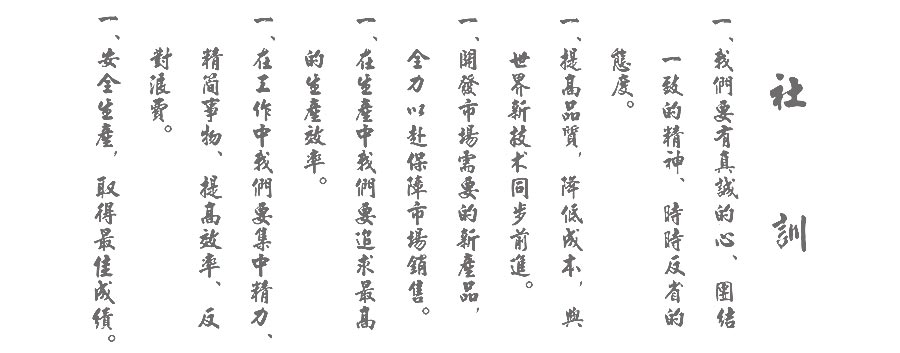 社訓
一、我們要有真誠的心、團結
一致的精神、時時反省的
態度。
一、提高品質，降低成本，與
世界新技术同步前進。
一、開發市場需要的新產品，
全力以赴保障市場銷售。
一、在生產中我們要追求最高
的生產效率。
一、在工作中我們要集中精力、
精简事物、提高效率、反
對浪費。
一、安全生產，取得最佳成績。